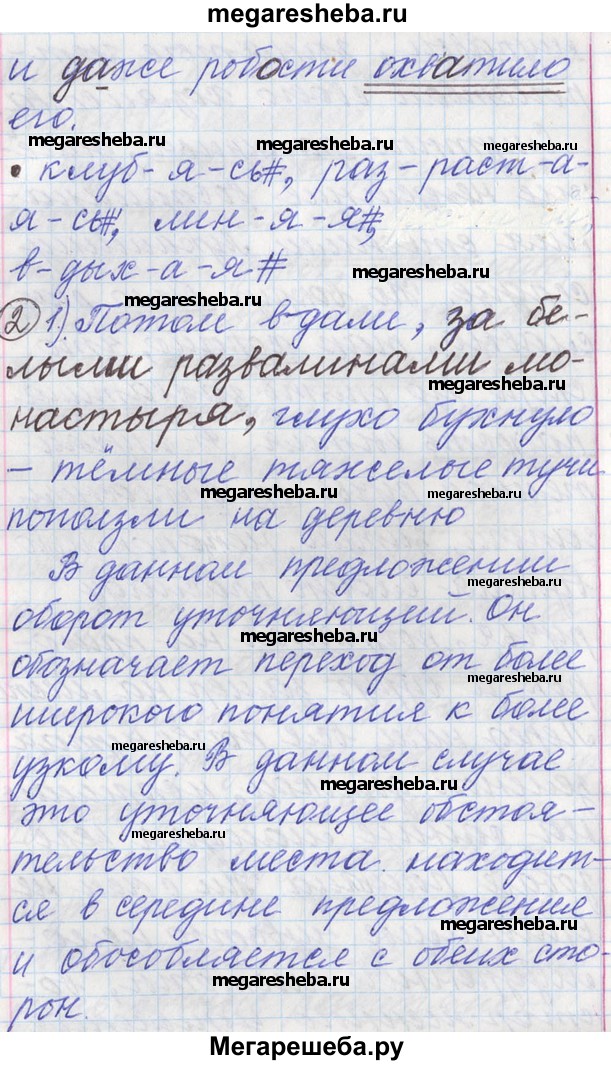 megaresheba.ru
и даже робости охватило
его.
megaresheba.ru
megaresheba.ru
• клуб-я-сь#, раз-раст-а-
я-сь#, лин-я-я#,
megaresheba.ru
megaresheba.ru
в-дых-а-я#
megaresheba.ru
② 1). Потом вдали, за бе-
лыми развалинами мо-
megaresheba.ru
настыря, глухо бухнуло
– тёмные тяжелые тучи
megaresheba.ru
megaresheba.ru
поползли на деревню
В данном предложении
megaresheba.ru
оборот уточняющий. Он
megaresheba.ru
обозначает переход от более
megaresheba.ru
широкого понятия к более
megaresheba.ru
узкому. В данном случае
megaresheba.ru
это уточняющее обстоя-
megaresheba.ru
тельство места. находит-
ся в середине предложения
megaresheba.ru
и обособляется с обеих сто-
megaresheba.ru
рон.
Мегарешеба.ру